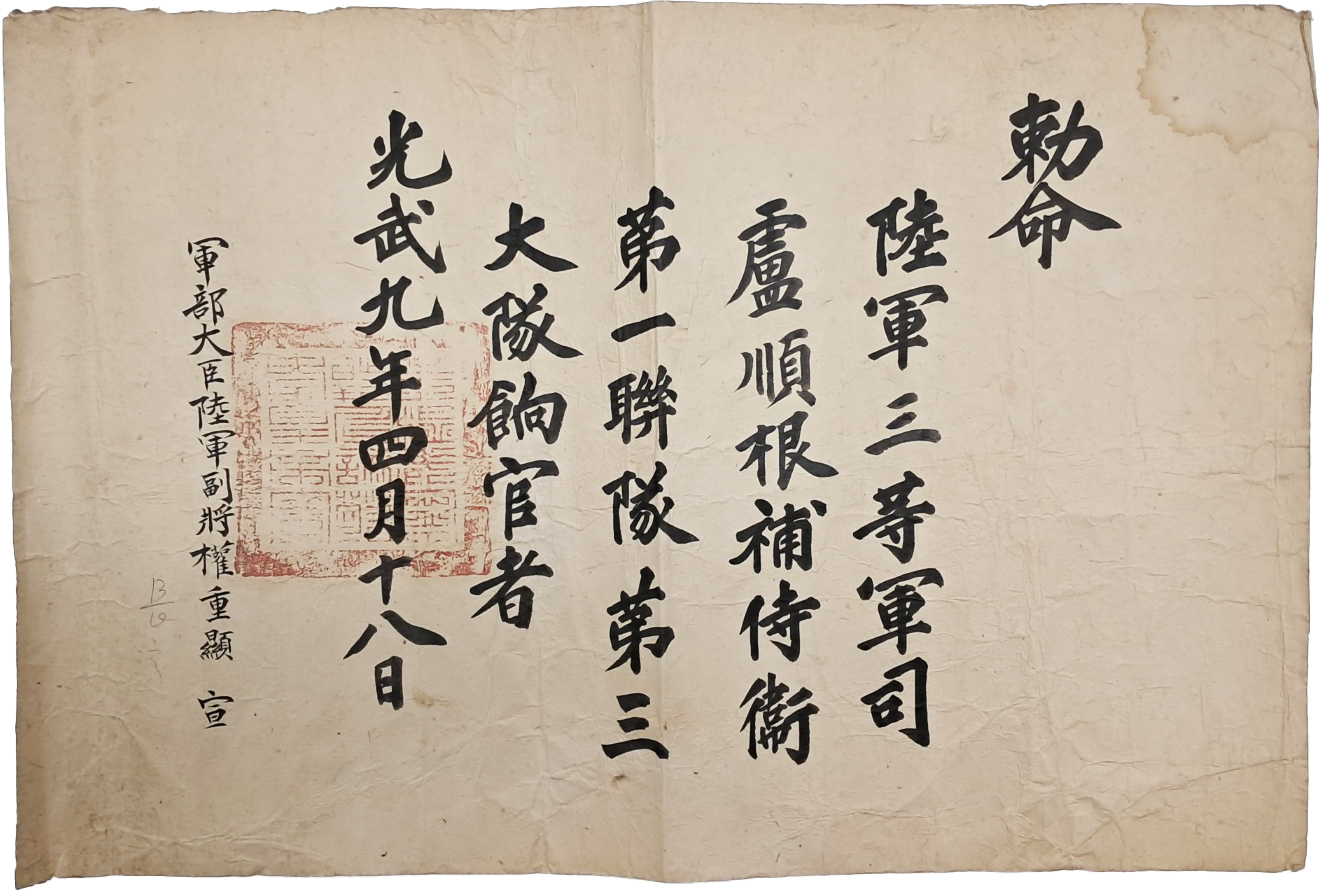 勅命
陸軍三等軍司
盧順根補侍衞
第一聯隊第三
大隊餉官者
光武九年四月十八日
軍部大臣陸軍副將權重顯 宣